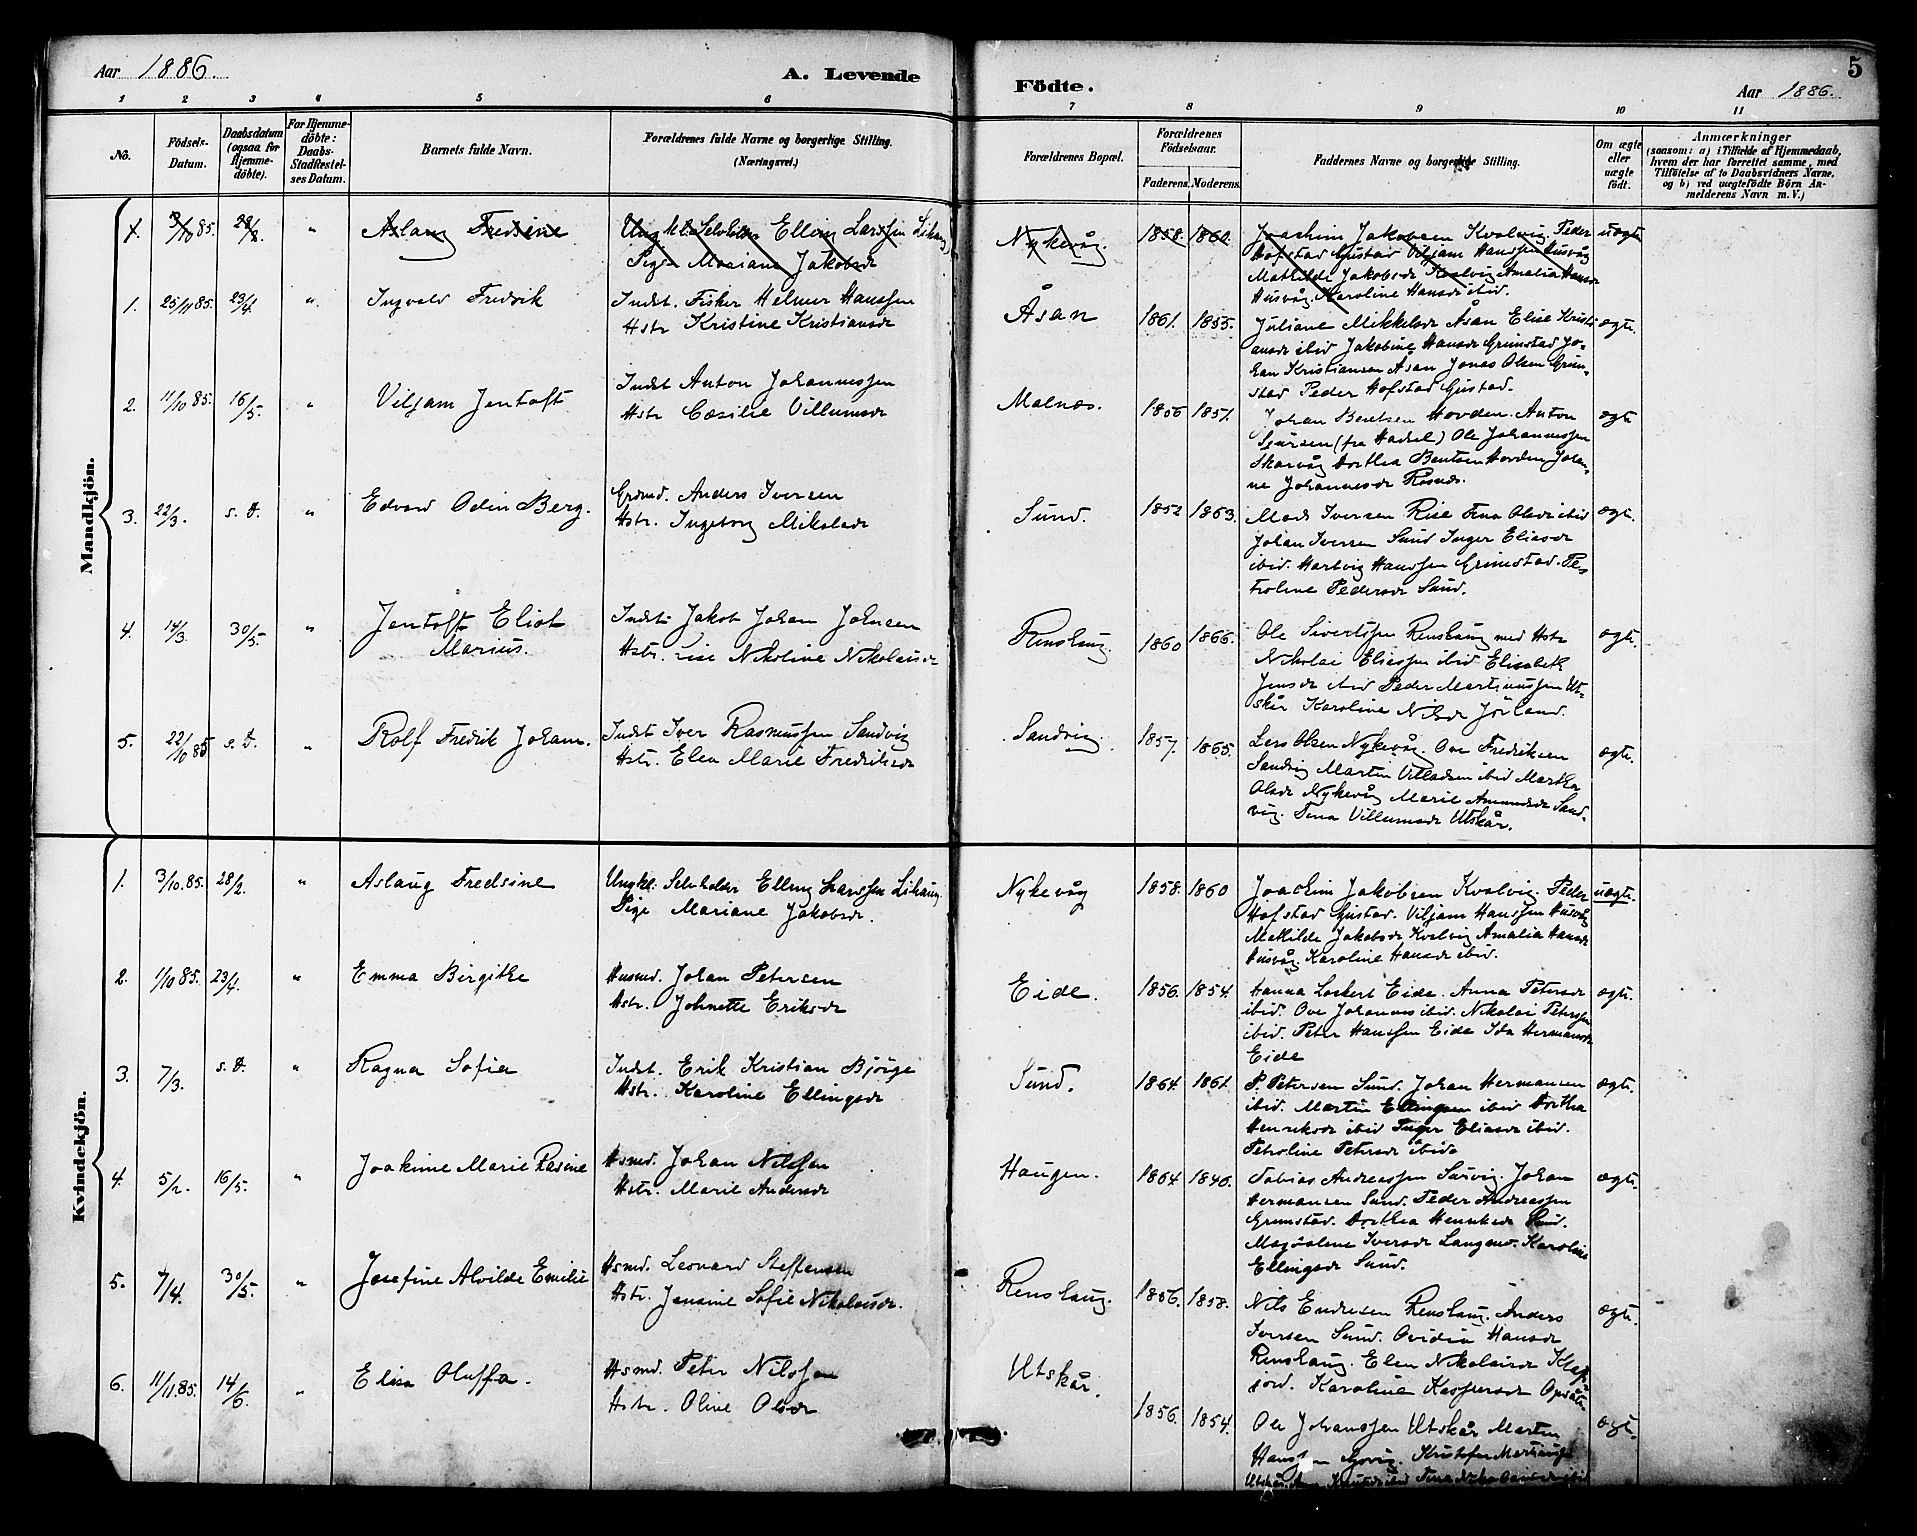 Aar 1886. A. Levende Födte. Aar 1886. 5
1 2 3 4 5 6 7 8 9 10 11
No.
Födsels-Datum.
Daabsdatum (ogsaa for Hjemme-döbte).
For Hjemme-döbte: Daabs-Stadfæstel-ses Datum.
Barnets fulde Navn.
Forældrenes fulde Navne og borgerlige Stilling.
(Næringsvei.)
Forældrenes Bopæl.
Forældrenes Födselsaar.
Faderens. Moderens.
Faddernes Navne og borgerlige Stilling.
Om ægte eller uægte födt.
Anmærkninger
(saasom: a) i Tilfælde af Hjemmedaab,
hvem der har forrettet samme, med
Tilföielse af to Daabsvidners Navne,
og b) ved uægtefödte Börn An-
melderens Navn m. V.)
Mandkjön.
1. 3/10 85. 28/2 " Aslaug Fredsine
Ungkl. Selveier Elling Larssen Lihaug
Pige Mariane Jakobsdr
Nykevåg. 1858. 1860.
Joachim Jakobsen Kvalvig. Peder
Hofstad Gustad Viljam Hanssen Husvåg
Mathilde Jakobsdr Kvalvig Amalia Hansdr
Husvåg. Karoline Hansdr ibid.
uægte
1. 25/11 85. 23/4. " Ingvald Fredrik
Indst. Fisker Helmer Hanssen
Hstr Kristine Kristiansdr
Åsan 1861. 1855.
Juliane Mikkelsdr Åsan Elise Kristi
ansdr ibid Jakobine Hansdr Grimstad Jo-
han Kristiansen Åsan Jonas Olsen Grim-
stad Peder Hofstad Gustad.
ægte.
2. 11/10 85. 16/5. " Viljam Jentoft
Indst Anton Johannessen
Hstr Cæsilie Villumsdr
Malnæs. 1856 1851.
Johan Bentsen Hovden. Anton
Sjursen (fra Hadsel) Ole Johannessen
Skarvåg Dorthea Bentsen Hovden Johan-
ne Johannesdr Røsnæs.
ægte
3. 22/3. s. D. " Edvard Odin Berg.
Grdmd. Anders Iversen
Hstr. Ingeborg Mikalsdr
Sund. 1852 1863.
Mads Iversen Rise Tina Olsdr ibid
Johan Iversen Sund Inger Eliasdr
ibid. Hartvig Hanssen Grimstad. Pe-
troline Pedersdr Sund.
ægte.
4. 14/3 30/5. " Jentoft Eliot
Marius.
Indst. Jakob Johan Johnsen
Hstr. Lise Nikoline Nikolaisdr
Renshaug. 1860 1866.
Ole Sivertssen Renshaug med Hstr
Nikolai Eliassen ibid Elisabeth
Jensdr ibid Peder Martinussen Ut-
skår Karoline Nilsdr Jörland.
ægte.
5. 22/10 85 s. D. " Rolf Fredrik Johan.
Indst Iver Rasmussen Sandvig
Hstr. Elen Marie Fredriksdr
Sandvig. 1857. 1865.
Lars Olsen Nykevåg. Ove Fredriksen
Sandvig Martin Villadsen ibid Martha
Olsdr Nykevåg Marie Amundsdr Sand-
vig. Tina Villumsdr Utskår.
ægte.
Kvindekjön.
1. 3/10. 85. 28/2. " Aslaug Fredsine
Ungkl. Selveier Elling Larssen Lihaug.
Pige Mariane Jakobsdr.
Nykevåg 1858. 1860
Joachim Jakobsen Kvalvig. Peder
Hofstad Gustad. Viljam Hanssen Husvåg
Mathilde Jakobsdr Kvalvig Amalia Hansdr
Husvåg. Karoline Hansdr ibid.
uægte.
2. 1/10 85. 23/4. " Emma Birgithe
Husmd. Johan Petersen
Hstr. Johnette Eriksdr
Eide. 1856. 1854.
Hanna Lockert Eide. Anna Petersdr
ibid. Ove Johannes ibid. Nikolai Peterssen
ibid. Peter Hanssen Eide Ida Hermansdr
Eide
ægte.
3. 7/3. s. D. " Ragna Sofia
Indst. Erik Kristian Bjørge
Hstr. Karoline Ellingsdr
Sund. 1864 1861.
P. Petersen Sund. Johan Hermansen
ibid. Martin Ellingsen ibid Dorthea
Henriksdr ibid Inger Eliasdr ibid.
Petroline Petersdr ibid.
ægte.
4. 5/2. 16/5. " Joakime Marie Pasine
Hsmd. Johan Nilssen
Hstr. Marie Andersdr
Haugen. 1864 1840.
Tobias Andreassen Survig. Johan
Hermansen Sund. Peder Andreassen
Grimstad. Dorthea Henriksdr Sund.
Magdalene Iversdr Langend. Karoline
Ellingsdr Sund.
ægte.
5. 7/4. 30/5. " Josefine Alvilde Emilie
Hsmd. Leonard Steffensen
Hstr. Jensine Sofie Nikolaisdr.
Renshaug. 1856. 1858.
Nils Endresen Renshaug. Anders
Iversen Sund. Ovidia Hansdr
Renshaug. Elen Nikolaisdr Klaf-
jord. Karoline Kaspersdr Opsåter
ægte.
6. 11/11.85. 14/6. " Elisa Oluffa.
Hsmd. Peter Nilssen
Hstr. Oline Olsdr
Utskår. 1856. 1854.
Ole Johanssen Utskår Martin
Hanssen Gjervig. Kristofer Martinussen
Utskår. ibid Tina ibid
ægte.